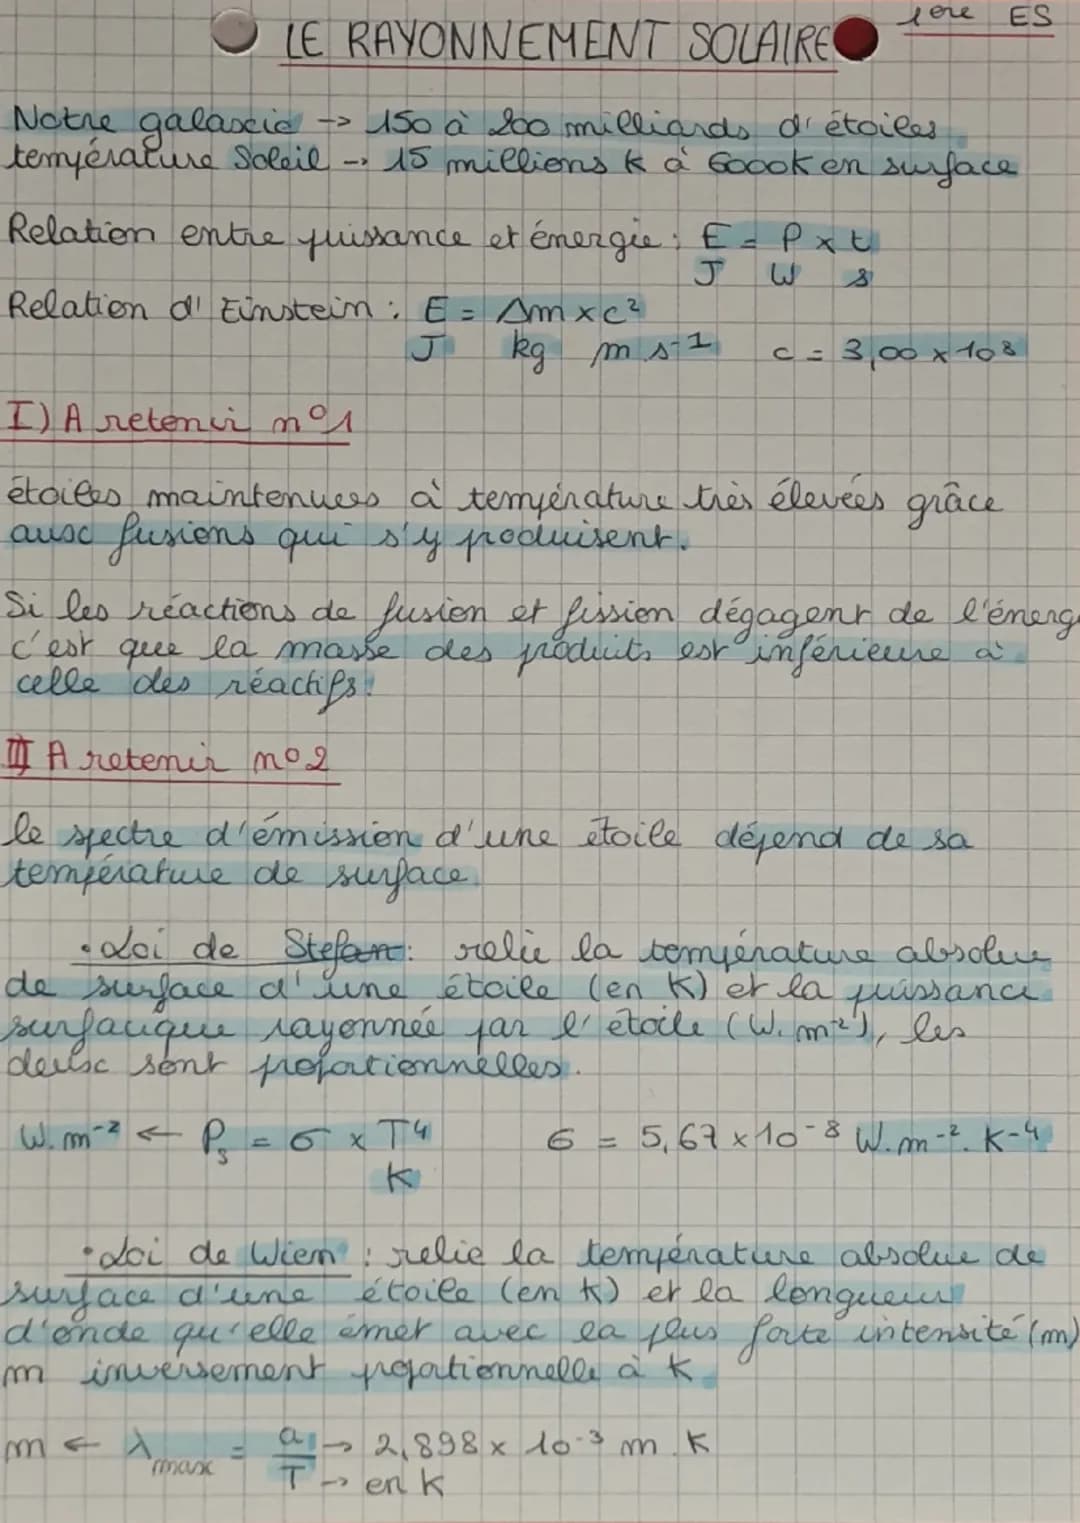 1ère ES
LE RAYONNEMENT SOLAIRE
Notre galaxie -> 150 à 200 milliards d'étoiles
température Soleil -> 15 millions K à 6000K en surface
Relation entre puissance et énergie : E = P x t
J W s
Relation d'Einstein : E = Δm x c²
J kg m s⁻¹ c = 3,00 x 10⁸
I) A retenir n°1
étoiles maintenues à température très élevées grâce
aux fusions qui s'y produisent.
Si les réactions de fusion et fission dégagent de l'énerg
c'est que la masse des produits est inférieure à
celle des réactifs.
II A retenir n°2
le spectre d'émission d'une étoile dépend de sa
température de surface.
• Loi de Stefan : relie la température absolue
de surface d'une étoile (en K) et la puissance
surfacique rayonnée par l'étoile (W.m⁻²), les
deux sont proportionnelles.
W.m⁻² ← Ps = σ x T⁴ σ = 5,67 x 10⁻⁸ W.m⁻².K⁻⁴
K
• Loi de Wien : relie la température absolue de
surface d'une étoile (en K) et la longueur
d'onde qu'elle émet avec la plus forte intensité (m)
m inversement proportionnelle à K
m ← λmax = a/T → 2,898 x 10⁻³ m.K
→ en K